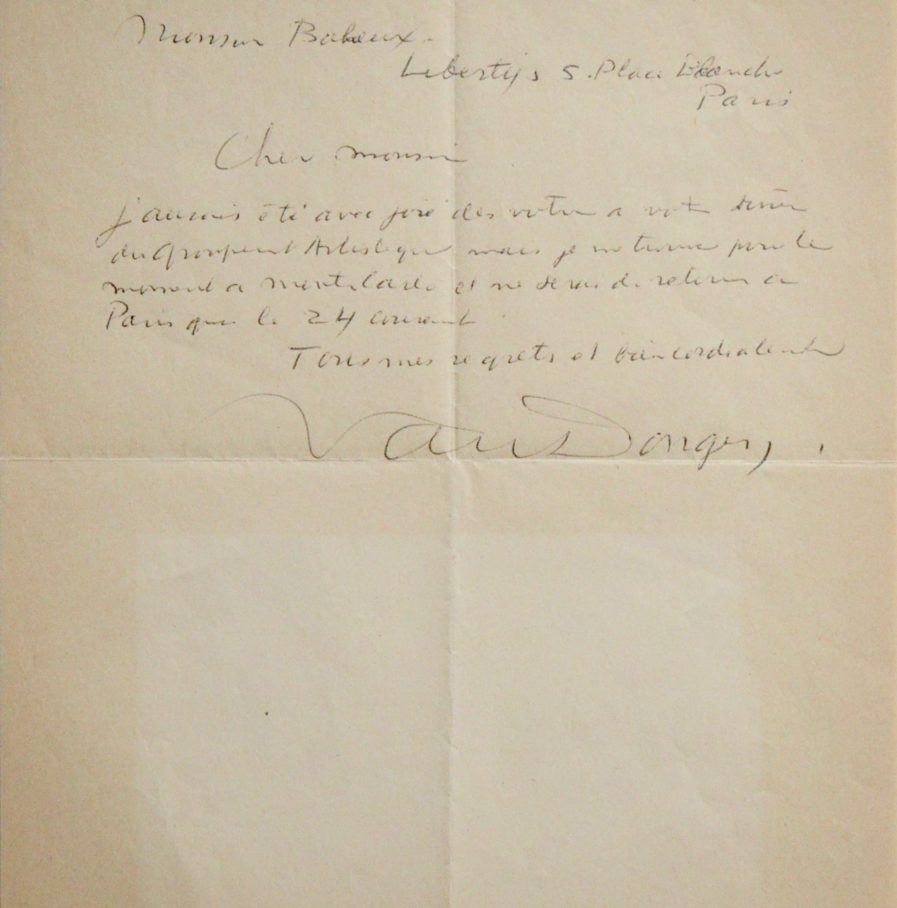 Monsieur Babeux.
Liberty's 5. Place Blanche
Paris
Cher monsieur
j'aurais été avec joie des votres a votre diner
du Groupement Artistique mais je me trouve pour le
moment a et ne serai de retour a
Paris que le 24 courant
Tous mes regrets et bien cordialement
Van Dongen